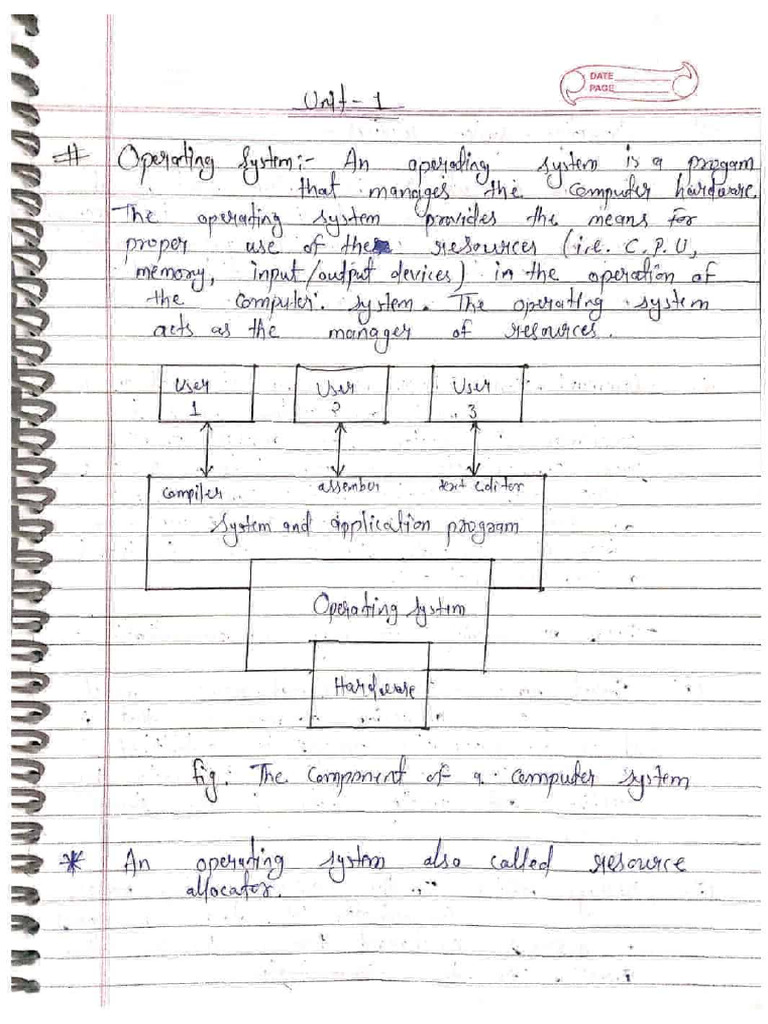 DATE
PAGE
Unit - 1
# Operating System:- An operating system is a progam
that manages the computer hardware.
The operating system provides the means for
proper use of the resources (i.e. C.P.U,
memory, input/output devices) in the operation of
the computer. system. The operating system
acts as the manager of resources.
User 1
User 2
User 3
compiler assember text editor
System and application prograam
Operating System
Hardware
fig. The component of a computer system
* An operating system also called resource
allocator.